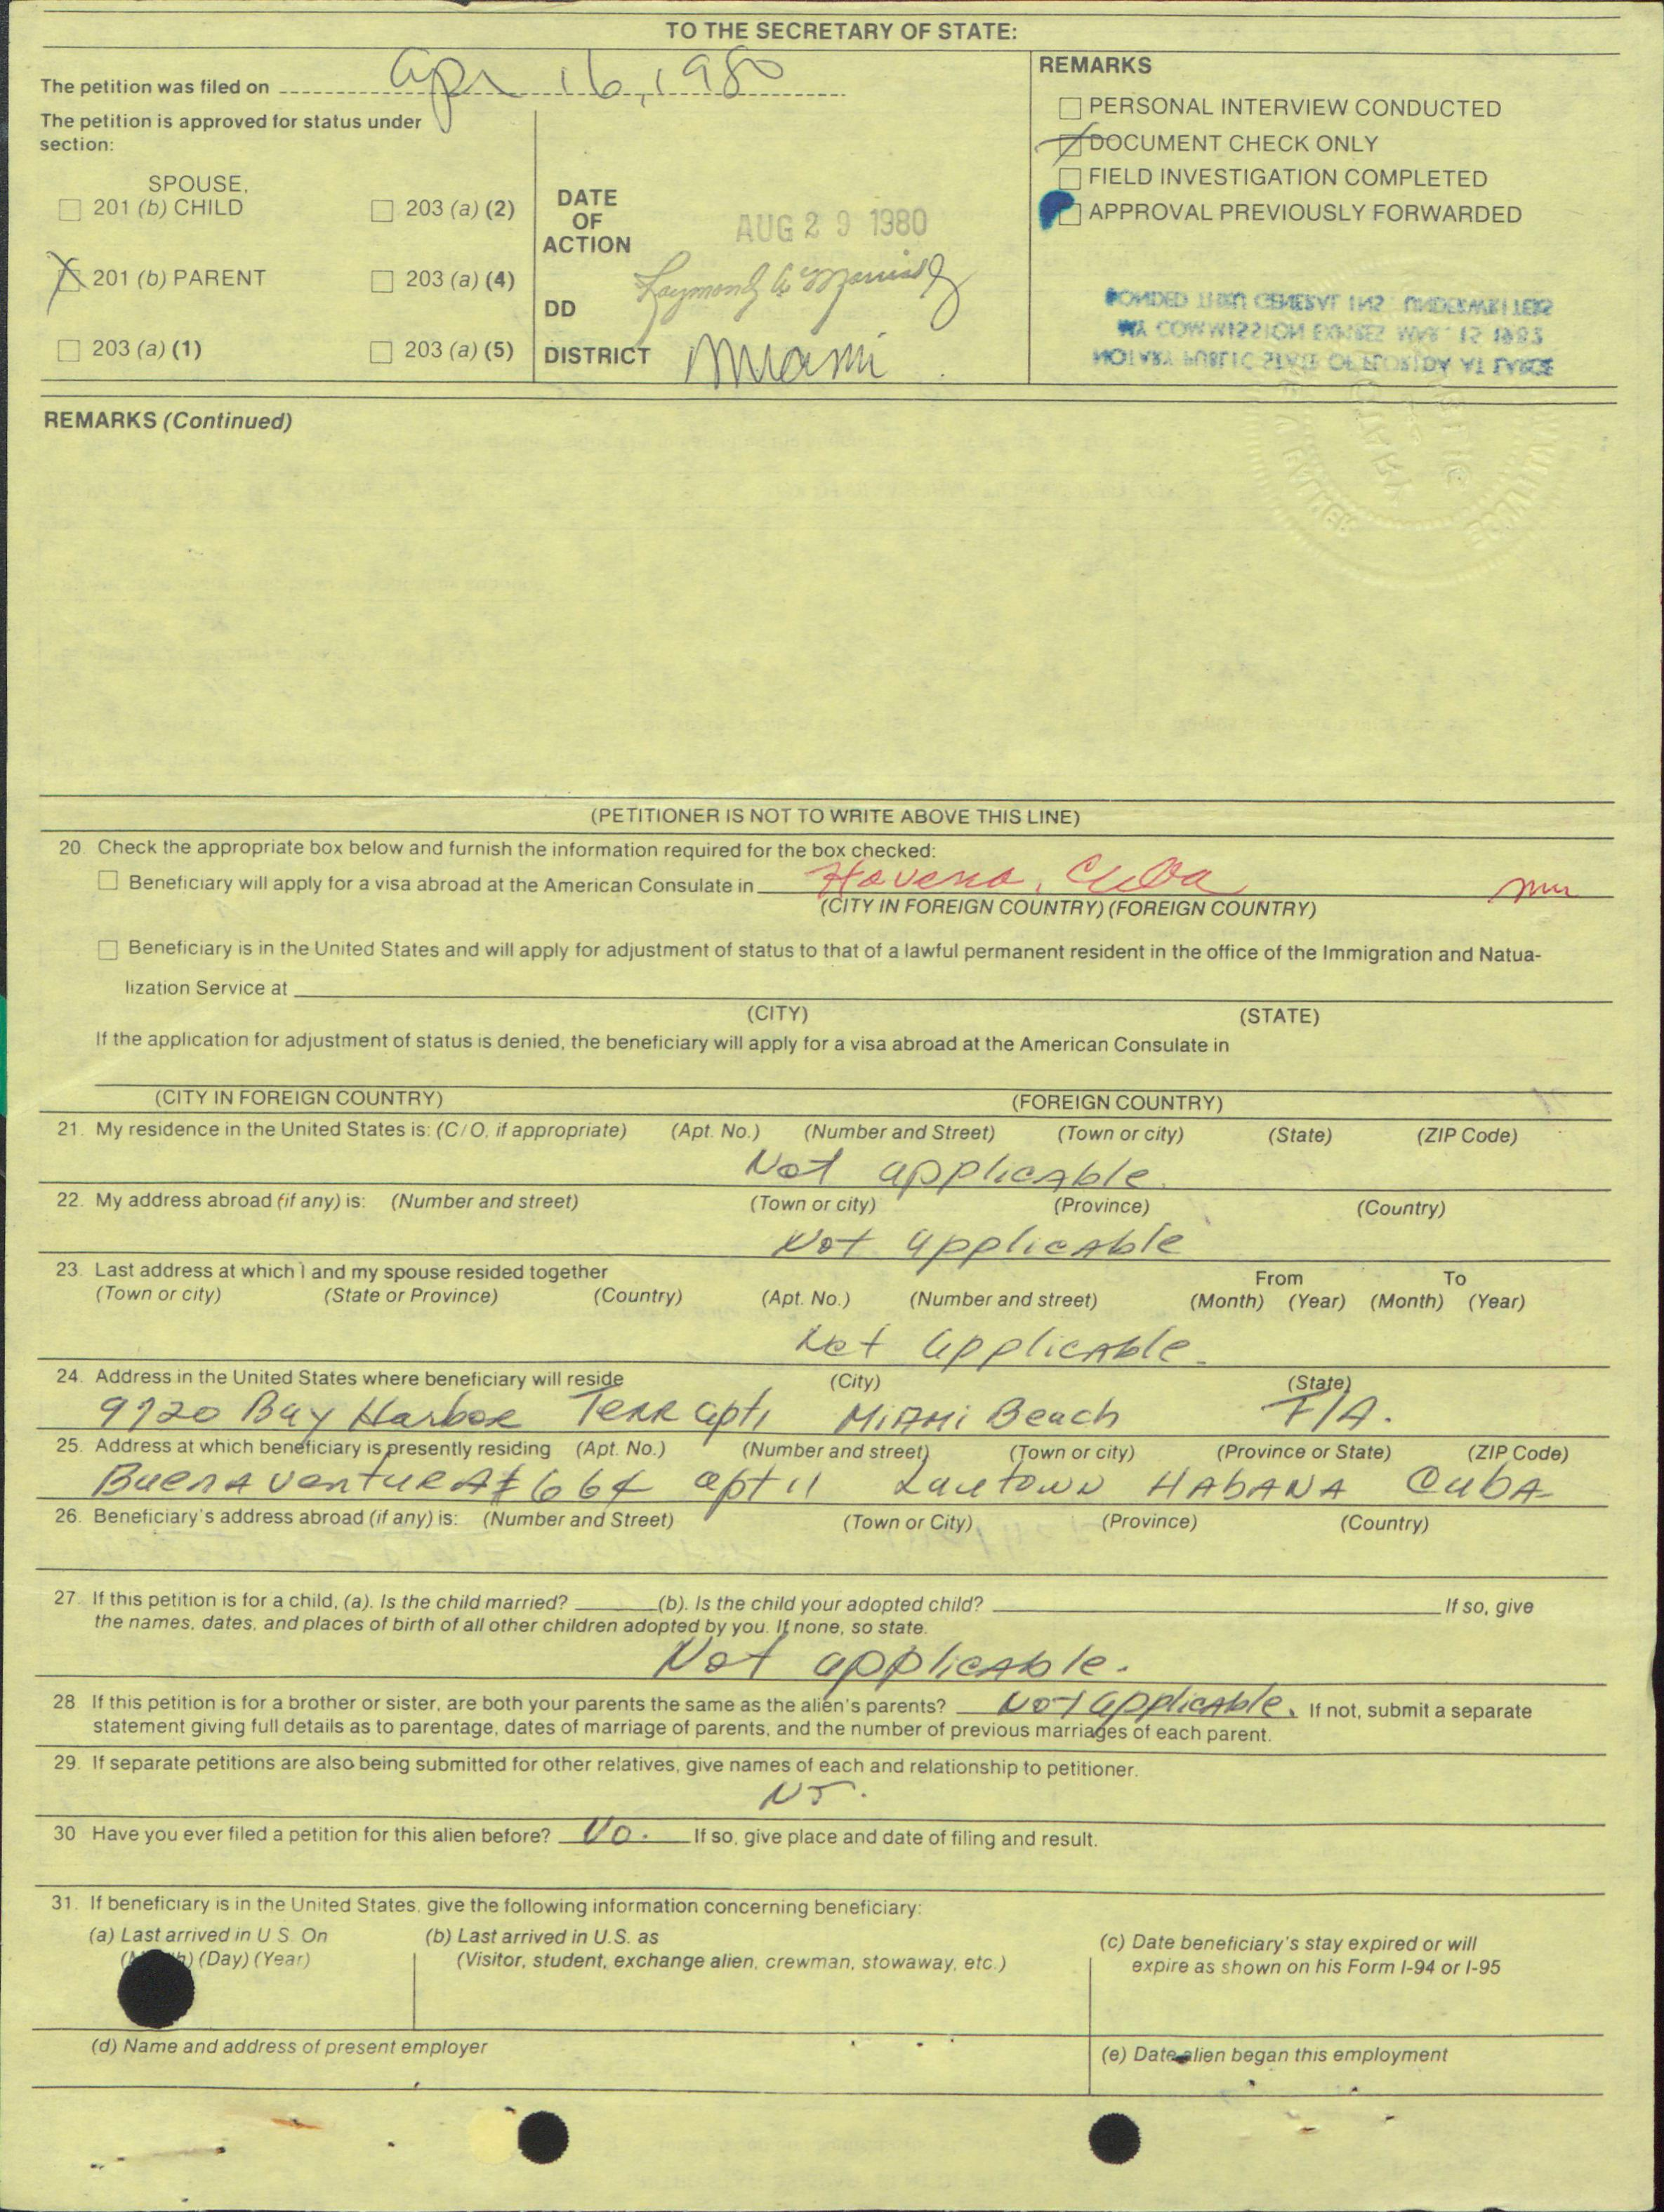 TO THE SECRETARY OF STATE:
The petition was filed on Apr 16, 1980
The petition is approved for status under
section:
SPOUSE,
201 (b) CHILD
203 (a) (2)
201 (b) PARENT
203 (a) (4)
203 (a) (1)
203 (a) (5)
DATE
OF
ACTION
AUG 29 1980
DD
Raymond A
DISTRICT Miami
REMARKS
PERSONAL INTERVIEW CONDUCTED
DOCUMENT CHECK ONLY
FIELD INVESTIGATION COMPLETED
APPROVAL PREVIOUSLY FORWARDED
BONDED THRU GENERAL INS. UNDERWRITERS
MY COMMISSION EXPIRES MAR. 15 1983
NOTARY PUBLIC STATE OF FLORIDA AT LARGE
REMARKS (Continued)
(PETITIONER IS NOT TO WRITE ABOVE THIS LINE)
20. Check the appropriate box below and furnish the information required for the box checked:
Beneficiary will apply for a visa abroad at the American Consulate in Havena, Cuba
(CITY IN FOREIGN COUNTRY) (FOREIGN COUNTRY)
Beneficiary is in the United States and will apply for adjustment of status to that of a lawful permanent resident in the office of the Immigration and Natua-
lization Service at
(CITY) (STATE)
If the application for adjustment of status is denied, the beneficiary will apply for a visa abroad at the American Consulate in
(CITY IN FOREIGN COUNTRY) (FOREIGN COUNTRY)
21. My residence in the United States is: (C/O, if appropriate) (Apt. No.) (Number and Street) (Town or city) (State) (ZIP Code)
Not applicable.
22. My address abroad (if any) is: (Number and street) (Town or city) (Province) (Country)
Not applicable
23. Last address at which I and my spouse resided together From To
(Town or city) (State or Province) (Country) (Apt. No.) (Number and street) (Month) (Year) (Month) (Year)
Not applicable.
24. Address in the United States where beneficiary will reside (City) (State)
9720 Bay Harbor Terr apt1 Miami Beach F/A.
25. Address at which beneficiary is presently residing (Apt. No.) (Number and street) (Town or city) (Province or State) (ZIP Code)
BuenAventurA # 664 apt 11 Lawtown HABANA CubA
26. Beneficiary's address abroad (if any) is: (Number and Street) (Town or City) (Province) (Country)
27. If this petition is for a child, (a). Is the child married? (b). Is the child your adopted child? If so, give
the names, dates, and places of birth of all other children adopted by you. If none, so state.
Not applicable.
28 If this petition is for a brother or sister, are both your parents the same as the alien's parents? Not applicable. If not, submit a separate
statement giving full details as to parentage, dates of marriage of parents, and the number of previous marriages of each parent.
29. If separate petitions are also being submitted for other relatives, give names of each and relationship to petitioner.
No.
30 Have you ever filed a petition for this alien before? No. If so, give place and date of filing and result.
31. If beneficiary is in the United States, give the following information concerning beneficiary:
(a) Last arrived in U.S. On
(Day) (Year)
(b) Last arrived in U.S. as
(Visitor, student, exchange alien, crewman, stowaway, etc.)
(c) Date beneficiary's stay expired or will
expire as shown on his Form I-94 or I-95
(d) Name and address of present employer
(e) Date alien began this employment